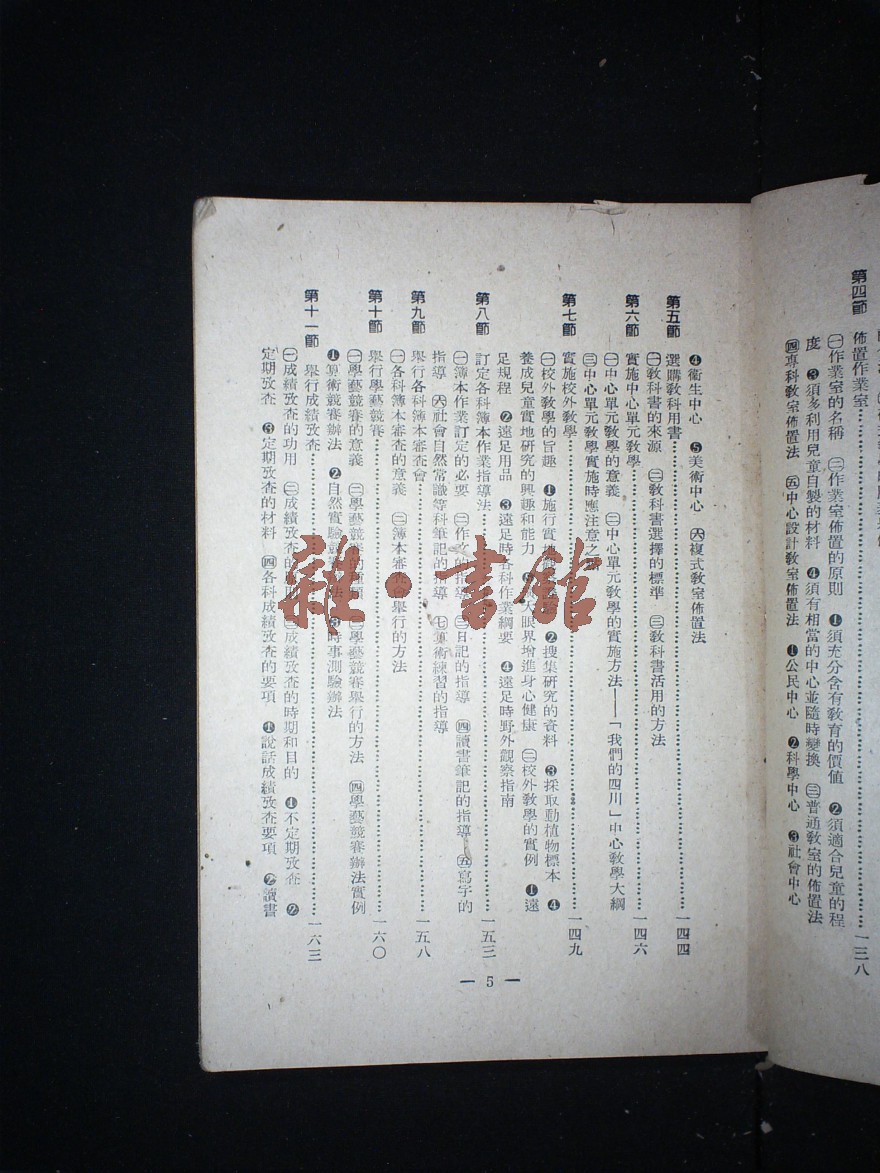 第四節 佈置作業室……一三八
㊀作業室的名稱 ㊁作業室佈置的原則 ❶須充分含有敎育的價值 ❷須適合兒童的程
度 ❸須多利用兒童自製的材料 ❹須有相當的中心並隨時變換 ㊂普通敎室的佈置法
㊃專科敎室佈置法 ㊄中心設計敎室佈置法 ❶公民中心 ❷科學中心 ❸社會中心
❹衞生中心 ❺美術中心 ㊅複式敎室佈置法
第五節 選購敎科用書……一四四
㊀敎科書的來源 ㊁敎科書選擇的標準 ㊂敎科書活用的方法
第六節 實施中心單元敎學……一四六
㊀中心單元敎學的意義 ㊁中心單元敎學的實施方法——「我們的四川」中心敎學大綱
㊂中心單元敎學實施時應注意之
第七節 實施校外敎學……一四九
㊀校外敎學的旨趣 ❶施行實地 ❷搜集硏究的資料 ❸採取動植物標本 ❹
養成兒童實地硏究的興趣和能力 大眼界增進身心健康 ㊁校外敎學的實例 ❶遠
足規程 ❷遠足用品 ❸遠足時各科作業綱要 ❹遠足時野外觀察指南
第八節 訂定各科簿本作業指導法……一五三
㊀簿本作業訂定的必要 ㊁作文的指導 ㊂日記的指導 ㊃讀書筆記的指導 ㊄寫字的
指導 ㊅社會自然常識等科筆記的指導 ㊆算術練習的指導
第九節 舉行各科簿本審查會……一五八
㊀各科簿本審查的意義 ㊁簿本審查會舉行的方法
第十節 舉行學藝競賽……一六〇
㊀學藝競賽的意義 ㊁學藝競賽的種類 ㊂學藝競賽舉行的方法 ㊃學藝競賽辦法實例
❶算術競賽辦法 ❷自然實驗競賽辦法 ❸時事測驗辦法
第十一節 舉行成績攷查……一六三
㊀成績攷查的功用 ㊁成績攷查的原則 ㊂成績攷查的時期和目的 ❶不定期攷查 ❷
定期攷查 ❸定期攷查的材料 ㊃各科成績攷查的要項 ❶說話成績攷查要項 ❷讀書
— 5 —
雜·書館